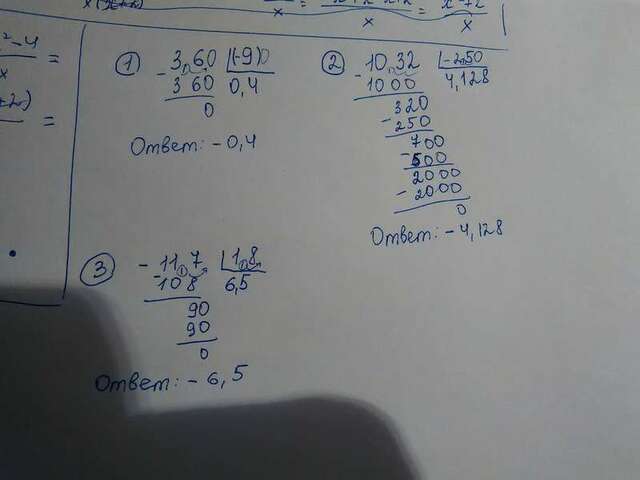 x
x
x
²-4
x
=
=
① 3,60 |(-9)0
- 360 0,4
0
Ответ: - 0,4
② 10,32 |-2,50
- 1000 4,128
320
- 250
700
- 500
2000
- 2000
0
Ответ: - 4,128
③ - 11,7 |1,8
- 108 6,5
90
90
0
Ответ: - 6,5